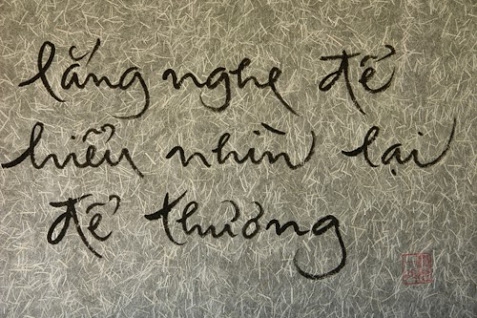 lắng nghe để
hiểu nhìn lại
để thương